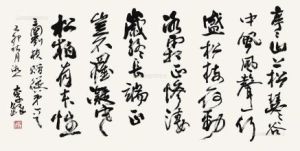 亭亭山上松瑟瑟谷
中風風聲一何
盛松枝一何勁
冰霜正慘淒
歲終長端正
豈不罹凝寒
松柏有本性
劉楨贈從弟
己卯